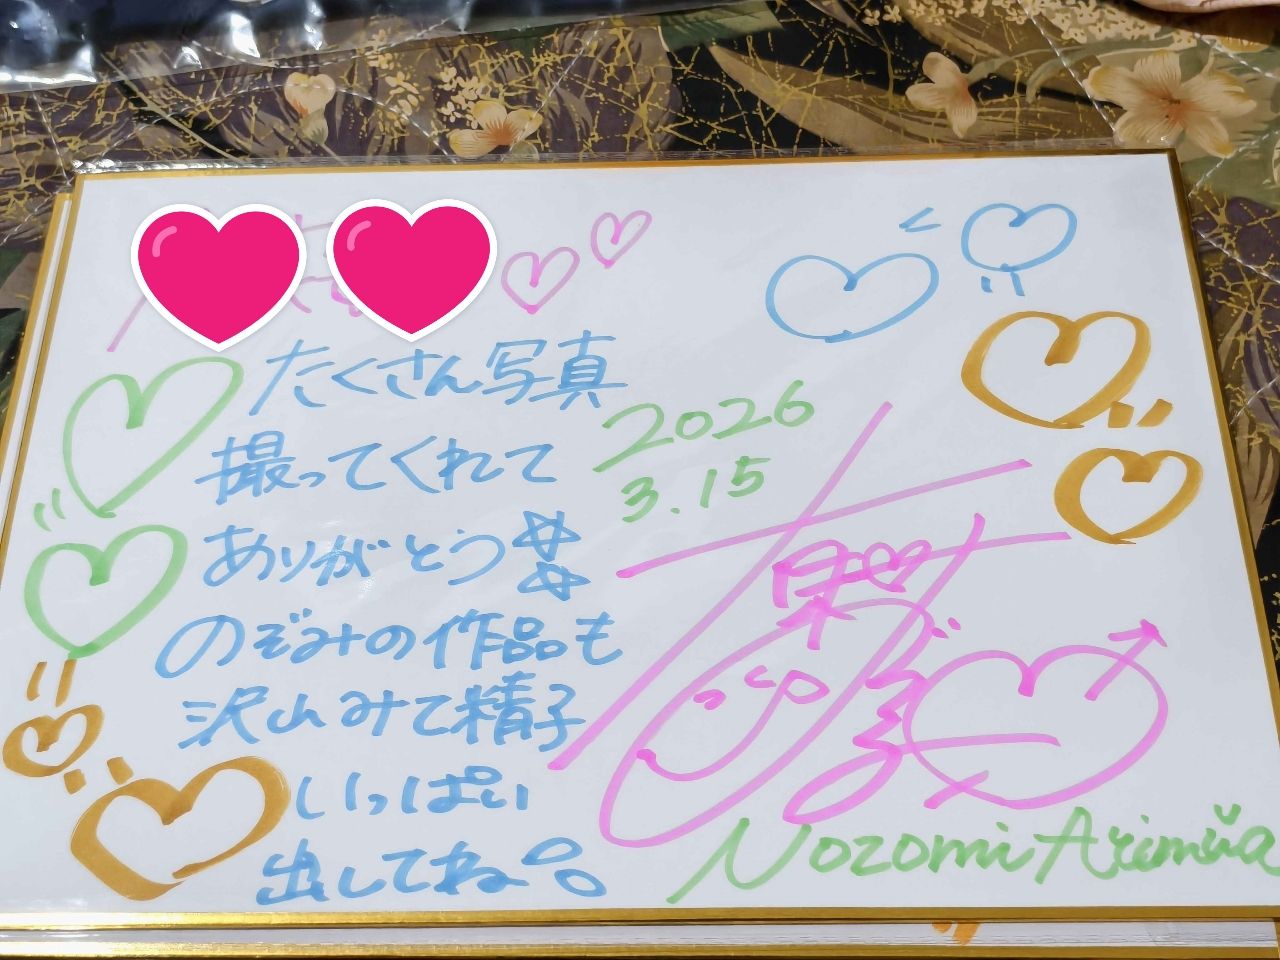 たくさん写真
撮ってくれて
ありがとう
のぞみの作品も
沢山みて精子
いっぱい
出してね
2026
3.15
Nozomi Arimura